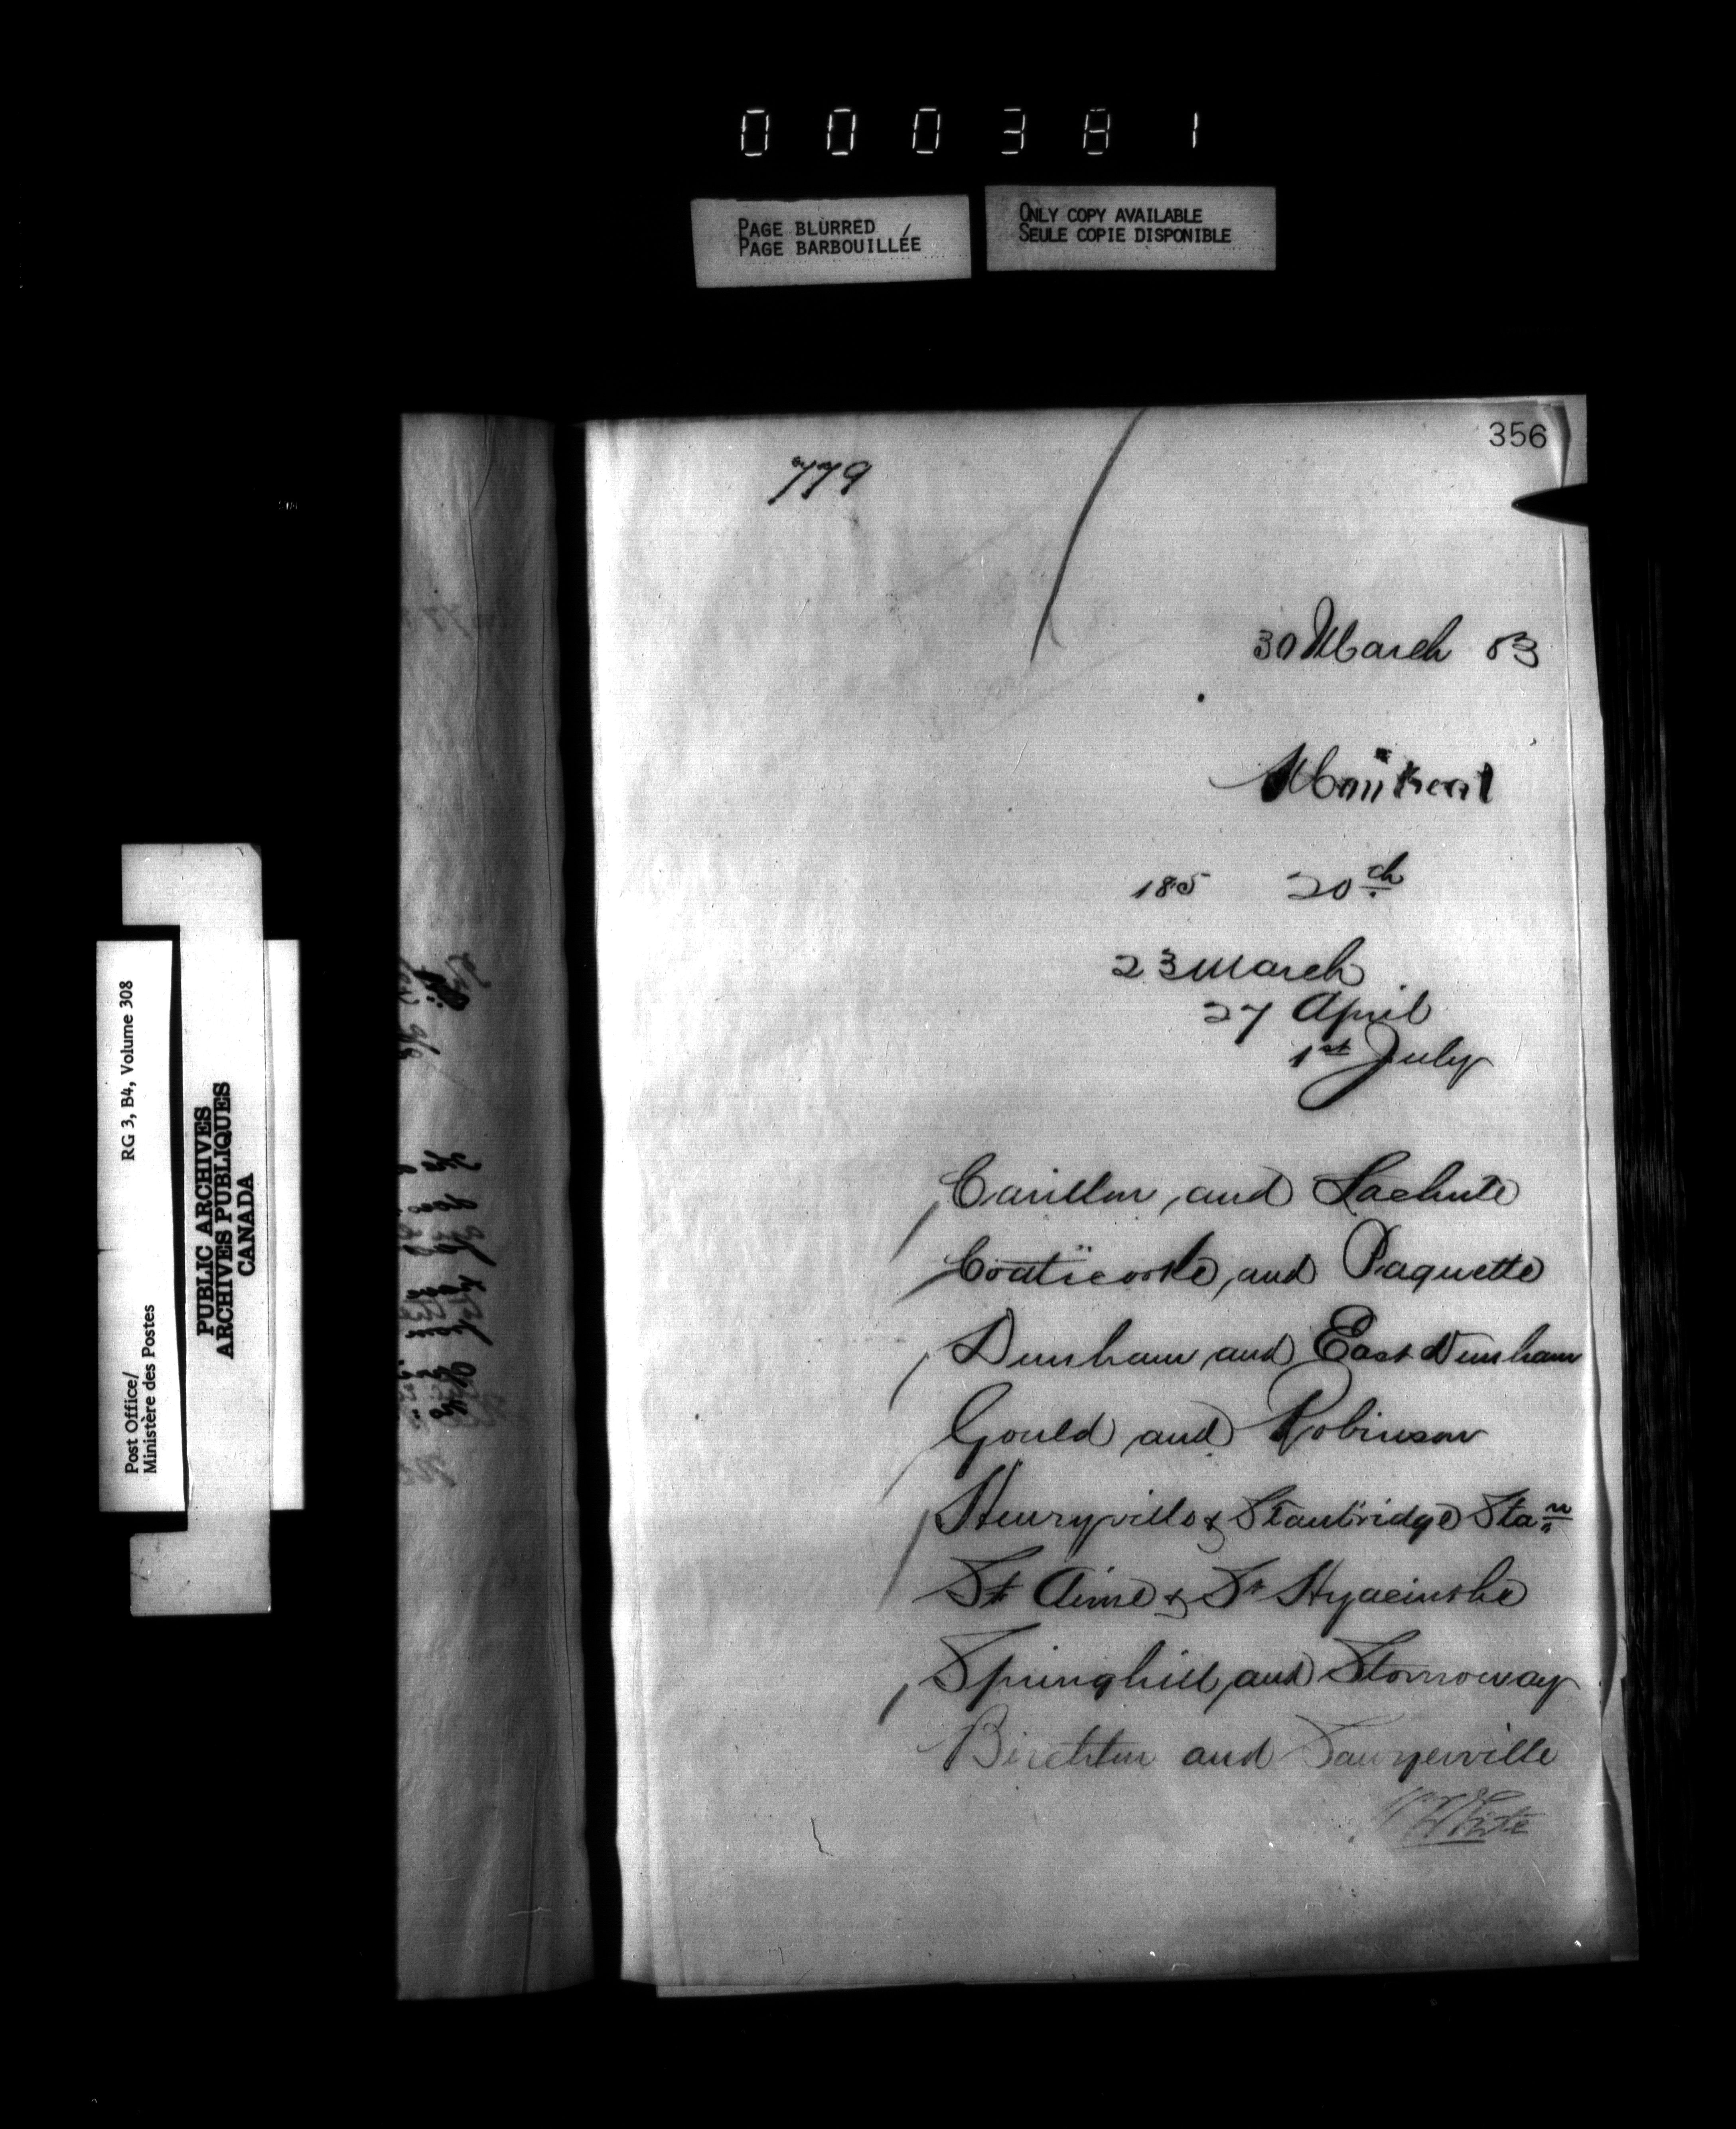 000381
PAGE BLURRED
PAGE BARBOUILLÉE
ONLY COPY AVAILABLE
SEULE COPIE DISPONIBLE
356
779
30 March 83
Montreal
185 20th
23 March
27 April
1st July
Carillon and Lachute
Coaticooke, and Paquette
Dunham and East Dunham
Gould and Robinson
Henryville & Stanbridge Stan
St Aime & St Hyacinthe
Springhill, and Stornoway
Birchton and Sawyerville
White
RG 3, B4, Volume 308
Post Office/
Ministère des Postes
PUBLIC ARCHIVES
ARCHIVES PUBLIQUES
CANADA